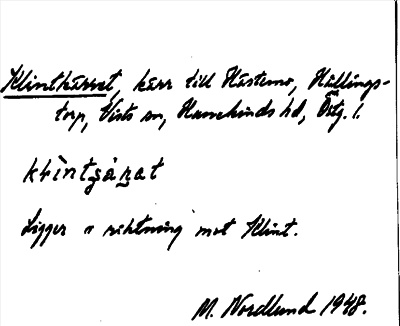 Klintkärret, kärr till Hästemo, Hällings-
torp, Vists sn, Hanekinds hd, Östg. l.
Ligger i riktning mot Klint.
M. Nordlund 1948.